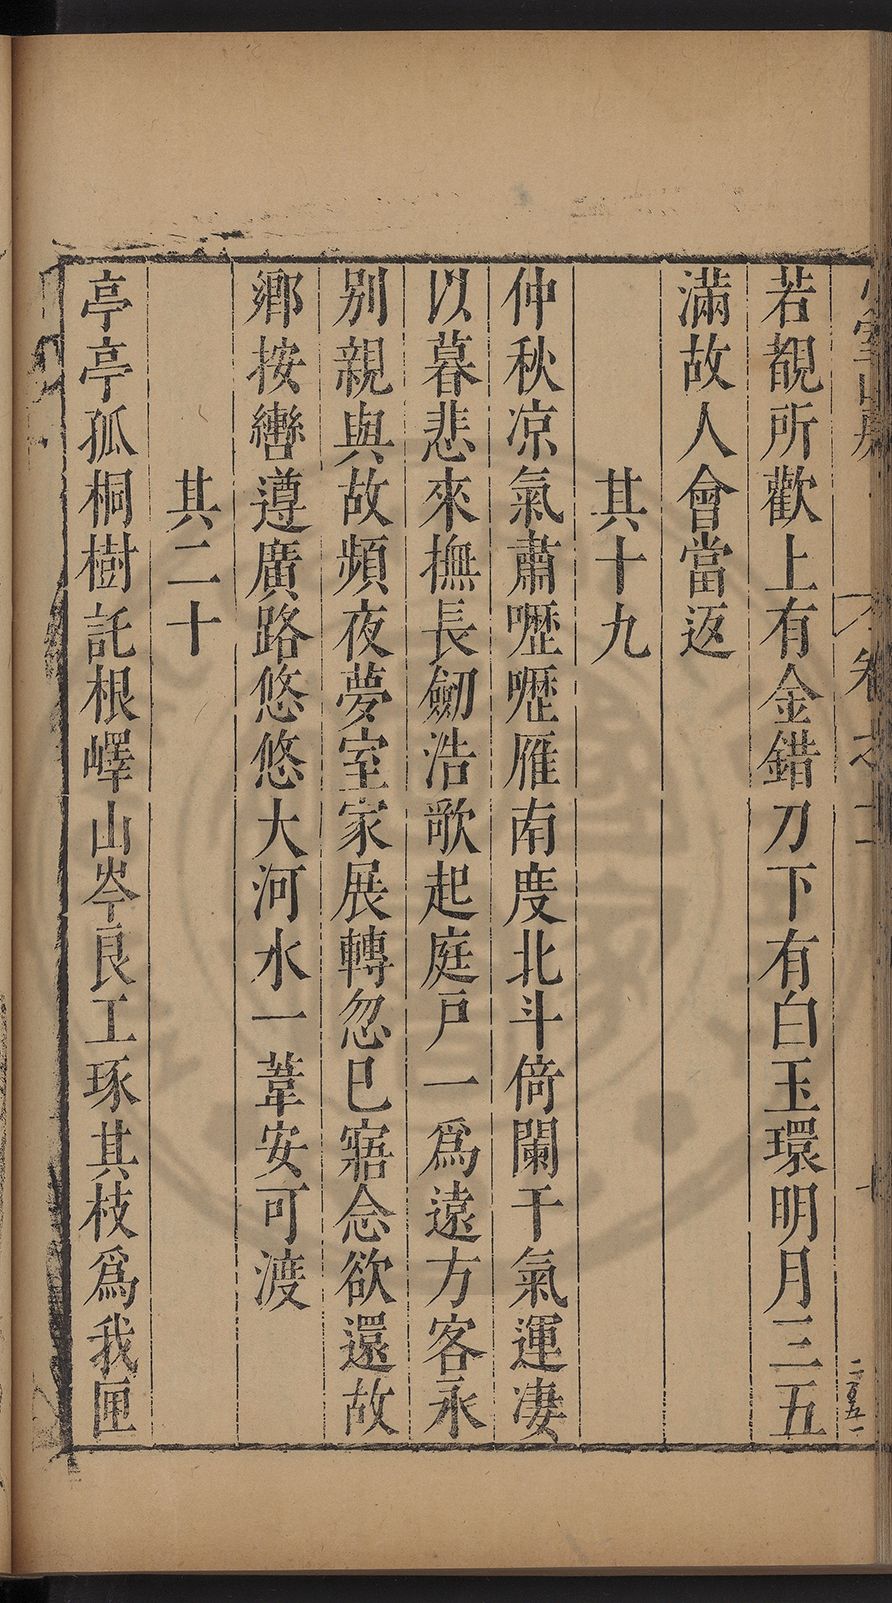 若覩所歡上有金錯刀下有白玉環明月三五
滿故人會當返
其十九
仲秋凉氣肅嚦嚦雁南度北斗倚闌干氣運凄
以暮悲來撫長劒浩歌起庭戸一爲遠方客永
别親與故頻夜夢室家展轉忽已寤念欲還故
鄉按轡遵廣路悠悠大河水一葦安可渡
其二十
亭亭孤桐樹託根嶧山岑良工琢其枝爲我匣